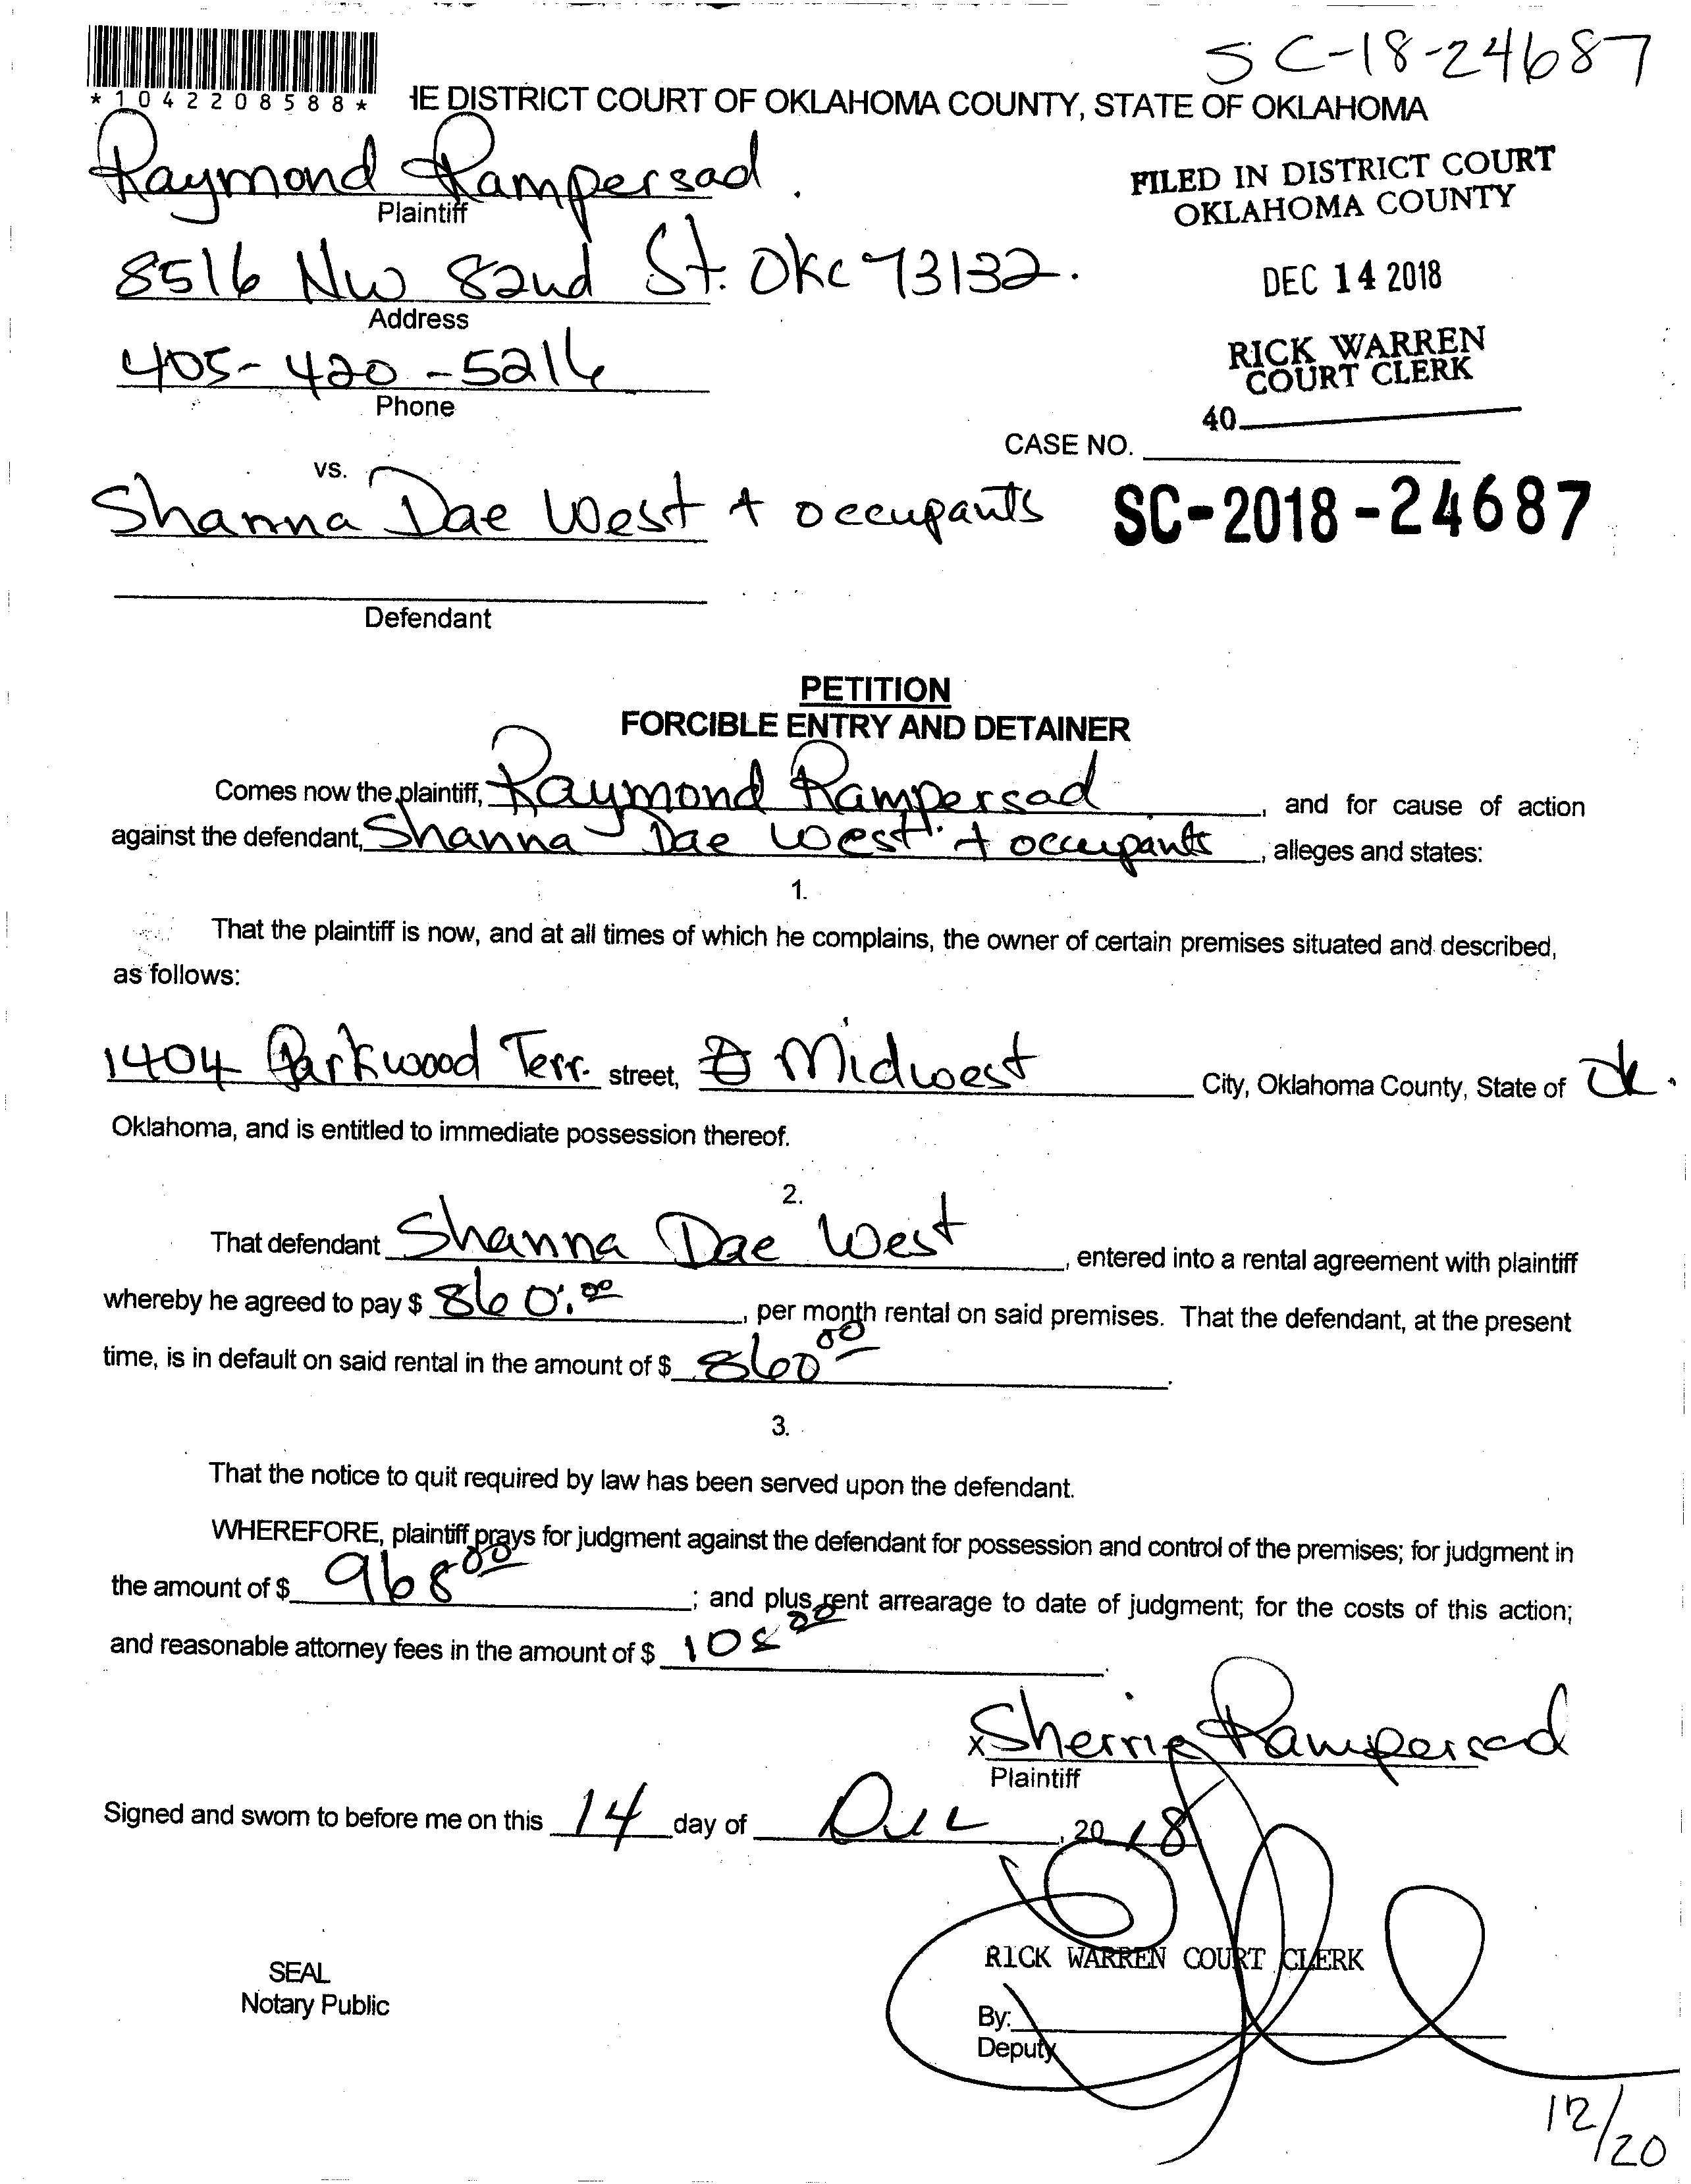 SC-18-24687
*1042208588*
HE DISTRICT COURT OF OKLAHOMA COUNTY, STATE OF OKLAHOMA
Raymond Rampersad.
Plaintiff
FILED IN DISTRICT COURT
OKLAHOMA COUNTY
8516 NW 82nd St. OKC 73132.
Address
DEC 14 2018
405-420-5216
Phone
RICK WARREN
COURT CLERK
40
CASE NO.
vs.
Shanna Dae West + occupants
SC-2018-24687
Defendant
PETITION
FORCIBLE ENTRY AND DETAINER
Comes now the plaintiff, Raymond Rampersad, and for cause of action
against the defendant, Shanna Dae West + occupants, alleges and states:
1.
That the plaintiff is now, and at all times of which he complains, the owner of certain premises situated and described,
as follows:
1404 Parkwood Terr. street, Midwest City, Oklahoma County, State of Ok.
Oklahoma, and is entitled to immediate possession thereof.
2.
That defendant Shanna Dae West, entered into a rental agreement with plaintiff
whereby he agreed to pay $ 860.00, per month rental on said premises. That the defendant, at the present
time, is in default on said rental in the amount of $ 860 00.
3.
That the notice to quit required by law has been served upon the defendant.
WHEREFORE, plaintiff prays for judgment against the defendant for possession and control of the premises; for judgment in
the amount of $ 968 00; and plus rent arrearage to date of judgment; for the costs of this action;
and reasonable attorney fees in the amount of $ 108 00.
x Sherrie Rampersad
Plaintiff
Signed and sworn to before me on this 14 day of Dec, 2018
RICK WARREN COURT CLERK
SEAL
Notary Public
By:
Deputy
12/20